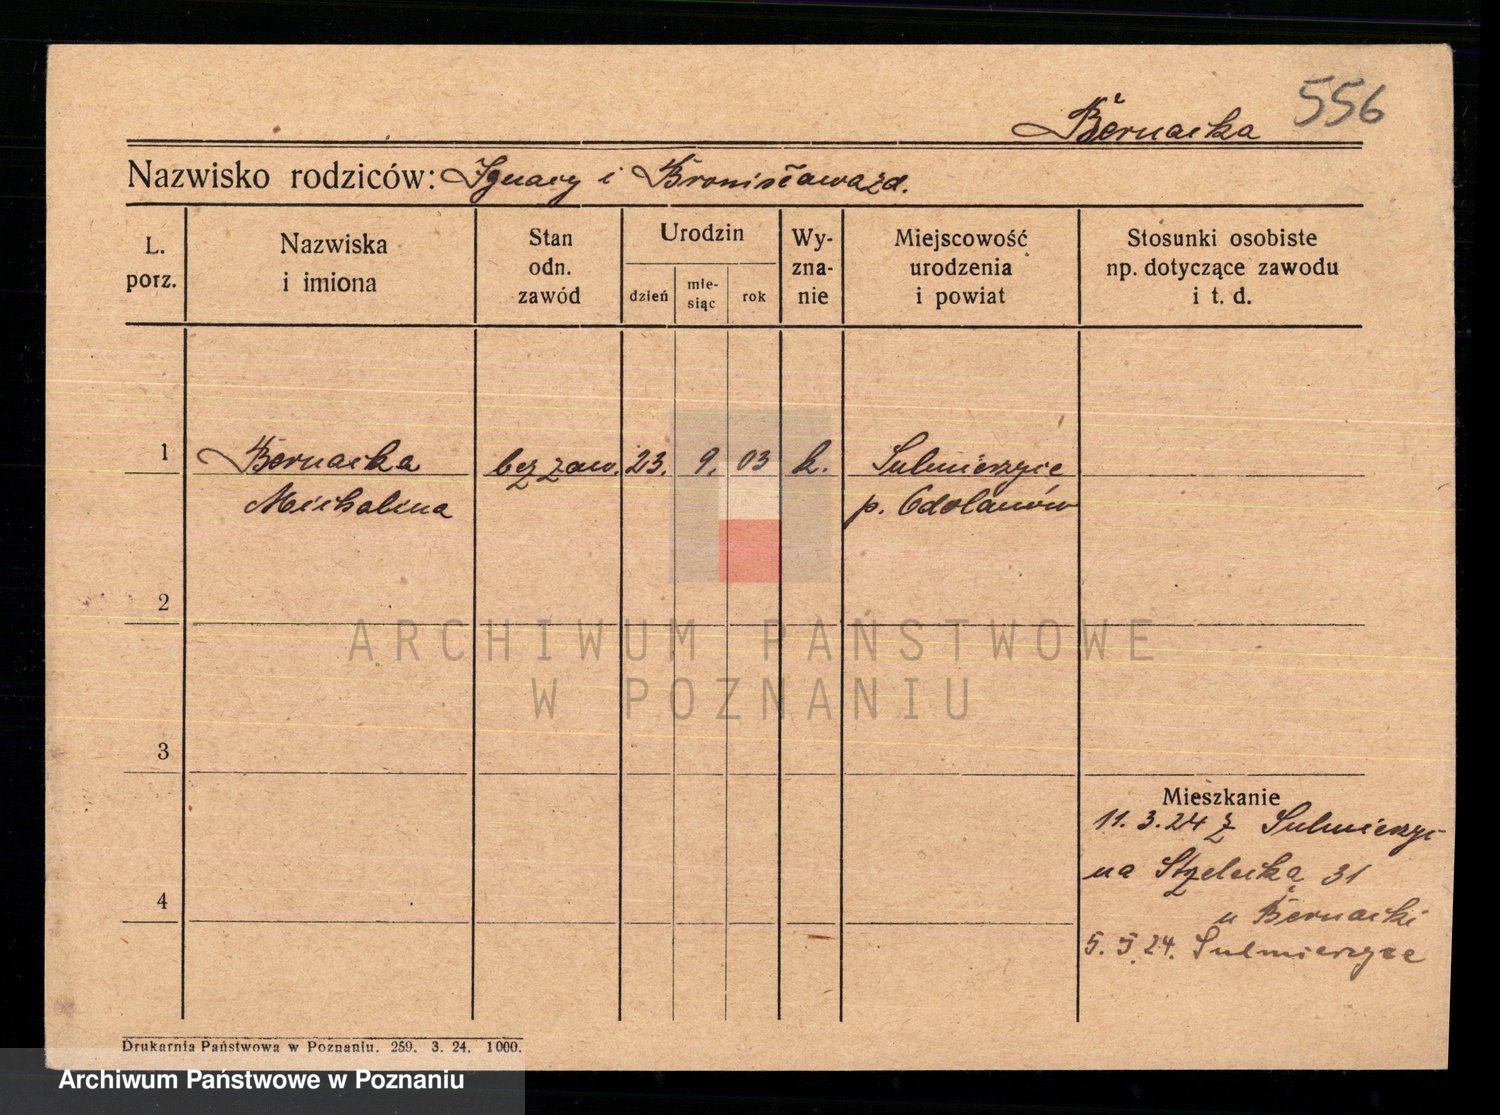 556
Bernacka
Nazwisko rodziców: Ignacy i Bronisława zd.
L. porz.
Nazwiska i imiona
Stan odn. zawód
Urodzin
dzień
mie-siąc
rok
Wy-zna-nie
Miejscowość urodzenia i powiat
Stosunki osobiste np. dotyczące zawodu i t. d.
1 Bernacka bez zaw. 23. 9. 03 k. Sulmierzyce
Michalina p. Odolanów
2
ARCHIWUM PAŃSTWOWE
W POZNANIU
3
Mieszkanie
11. 3. 24 z Sulmierzyc
na Strzelecka 31
4
u Bernacki
5. 5. 24. Sulmierzyce
Drukarnia Państwowa w Poznaniu. 259. 3. 24. 1000.
Archiwum Państwowe w Poznaniu